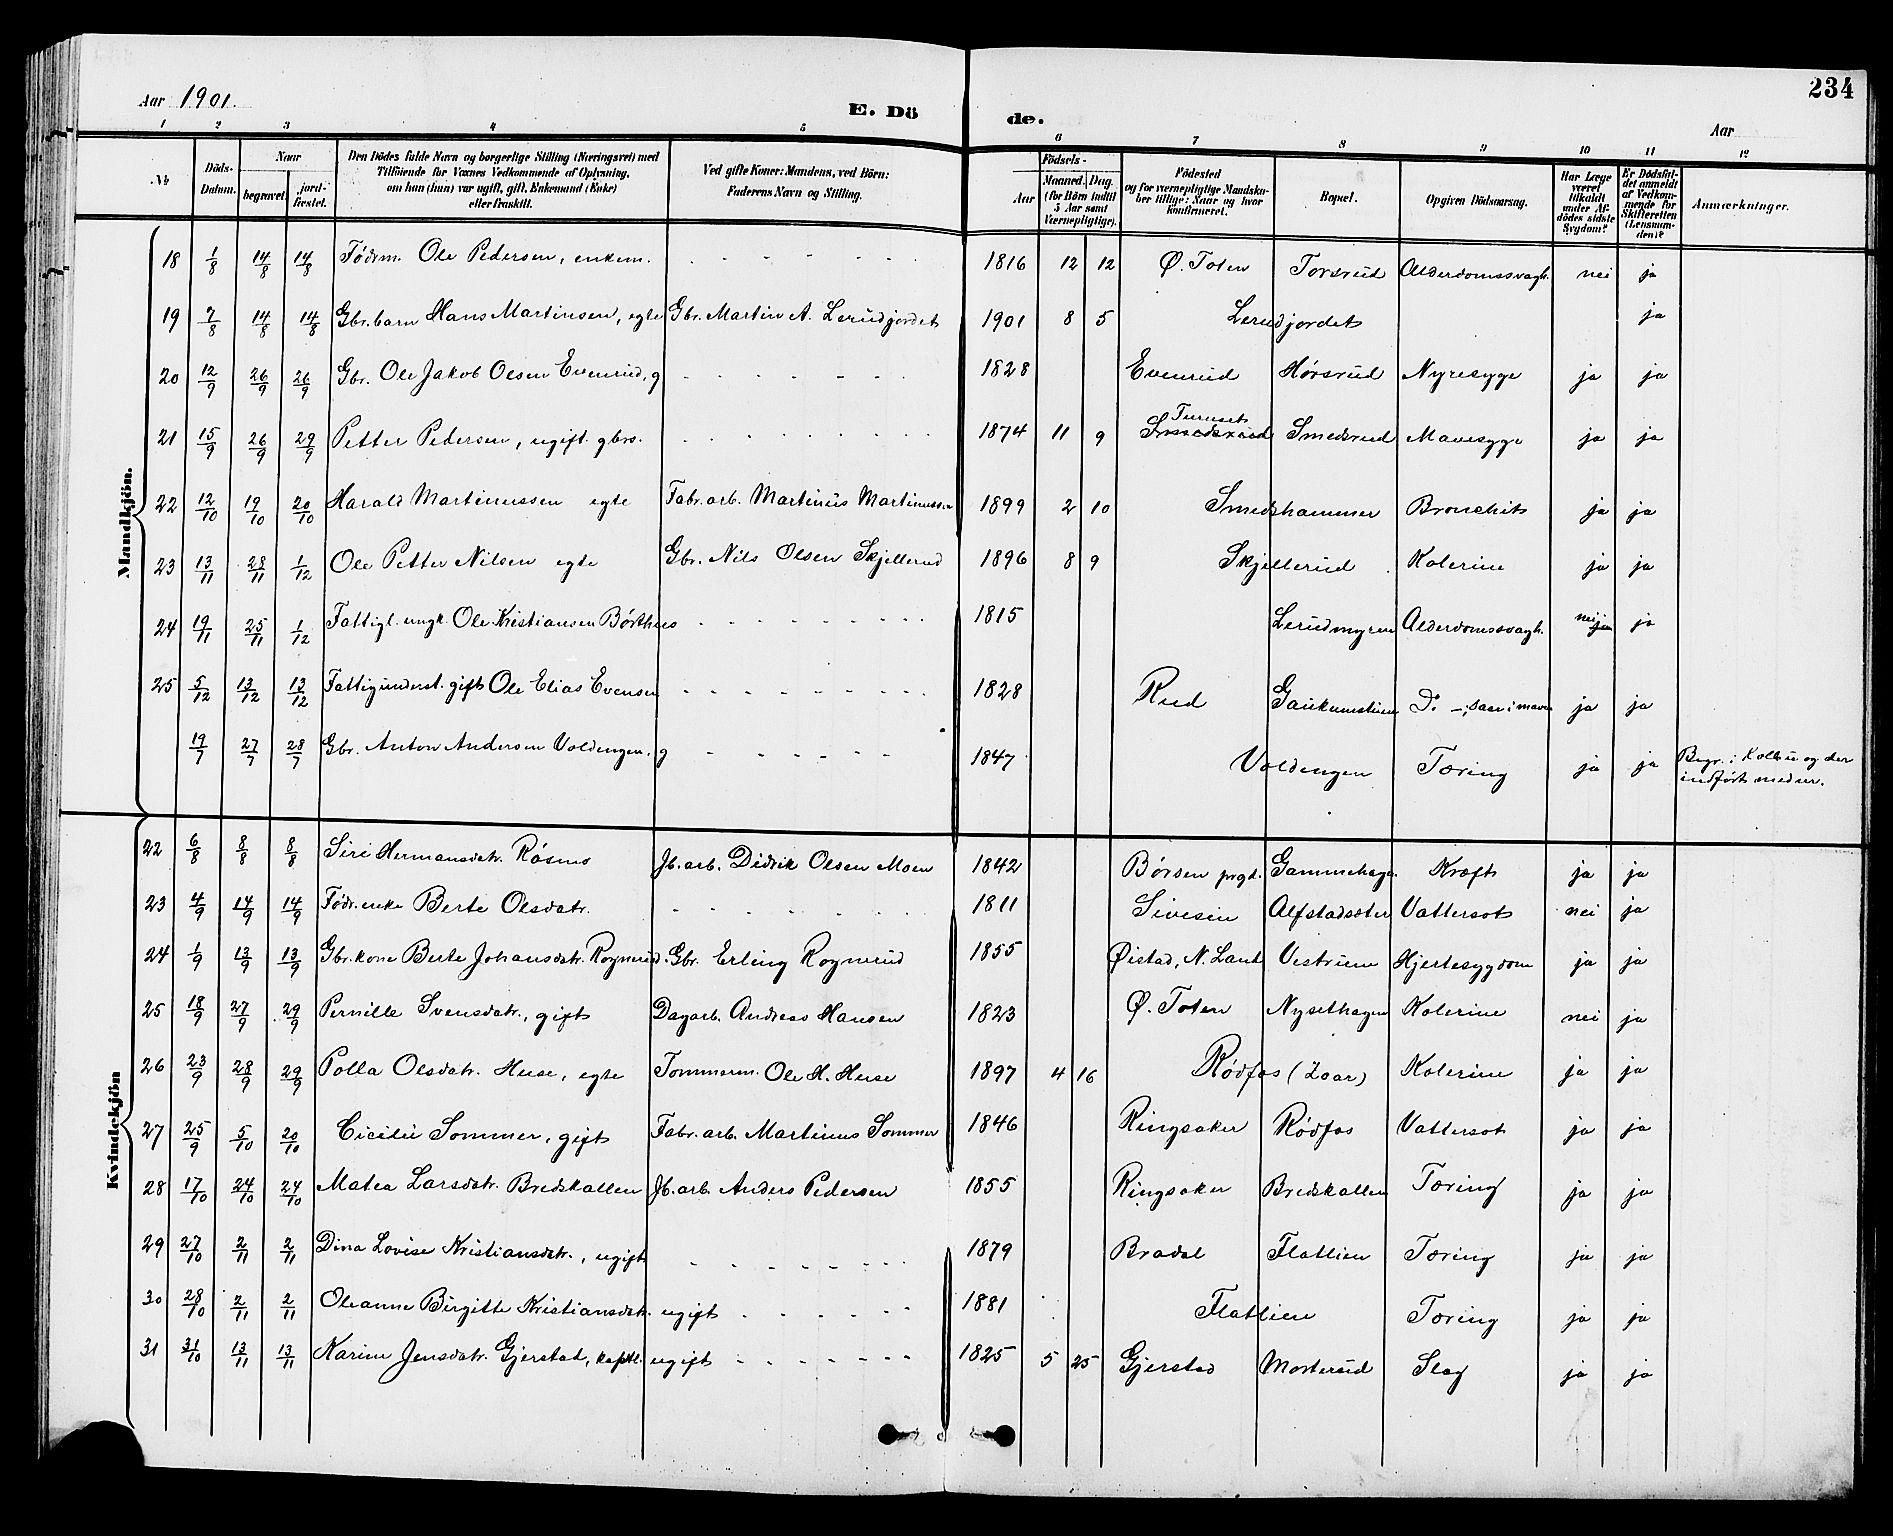 234
Aar 1901.
E. Dö
de.
Aar
1 2 3 4 5 6 7 8 9 10 11 12
No
Döds-Datum.
Naar
begravet.
jord-fæstet.
Den Dödes fulde Navn og borgerlige Stilling (Næringsvei) med Tilföiende for Voxnes Vedkommende af Oplysning, om han (hun) var ugift, gift, Enkemand (Enke) eller fraskilt.
Ved gifte Koner: Mandens, ved Börn: Faderens Navn og Stilling.
Födsels-
Aar
Maaned. Dag.
(for Börn indtil 5 Aar samt Værnepligtige).
Födested og for værnepligtige Mandskaber tillige: Naar og hvor konfirmeret.
Bopæl.
Opgiven Dödsaarsag.
Har Læge været tilkaldt under Afdödes sidste Sygdom?
Er Dödsfaldet anmeldt af Vedkommende for Skifteretten (Lensmanden)?
Anmærkninger.
Mandkjön.
18 1/8 14/8 14/8 Födrm. Ole Pedersen, enkem. 1816 12 12 Ø. Toten Torsrud Alderdomssvagh. nei ja
19 7/8 14/8 14/8 Gbr. barn Hans Martinsen, egte Gbr. Martin A. Lerudjordet 1901 8 5 Lerudjordet ja
20 12/9 26/9 26/9 Gbr. Ole Jakob Olsen Evenrud, g 1828 Evenrud Hørsrud Nyresyge ja ja
21 15/9 26/9 29/9 Petter Pedersen, ugift gbrs. 1874 11 9 Smedsrud Smedsrud Mavesyge ja ja
22 12/10 19/10 20/10 Harald Martinussen egte Fabr. arb. Martinus Martinussen 1899 2 10 Smedshammer Bronchit ja ja
23 13/11 28/11 1/12 Ole Petter Nilsen egte Gbr. Nils Olsen Skjellerud 1896 8 9 Skjellerud Kolerine ja ja
24 19/11 25/11 1/12 Fattigl. ungk. Ole Kristiansen Børthus 1815 Lerudmyren Alderdomssvagh. nei ja
25 5/12 13/12 13/12 Fattigunderst. gift Ole Elias Evensen 1828 Rud D: -, saar i maven ja ja
19/7 27/7 28/7 Gbr. Anton Andersen Voldengen, g 1847 Voldengen Tæring ja ja Begr. i Kolbu og der indført med nr.
Kvindekjön
22 6/8 8/8 8/8 Siri Hermansdatr. Røsmo Jb. arb. Didrik Olsen Moen 1842 Børsen prgd. Gammehagen Kræft ja ja
23 4/9 14/9 14/9 Födr. enke Berte Olsdatr. 1811 Sivesin Alfstadsæter Vattersot nei ja
24 1/9 13/9 13/9 Gbr. kone Berte Johansdatr. Rognerud. Gbr. Erling Rognerud 1855 Øistad, N. Land Vestrum Hjertesygdom ja ja
25 18/9 27/9 29/9 Pernille Svensdatr., gift Dagarb. Andreas Hansen 1823 Ø. Toten Nysethagen Kolerine nei ja
26 23/9 28/9 29/9 Polla Olsdatr. Huse, egte Tømmerm. Ole H. Huse 1897 4 16 Rødfos (Zoar) Kolerine ja ja
27 25/9 5/10 20/10 Cicilie Sommer, gift Fabr. arb. Martinus Sommer 1846 Ringsaker Rødfos Vattersot ja ja
28 17/10 24/10 24/10 Matea Larsdatr. Bredskallen Jb. arb. Anders Pedersen 1855 Ringsaker Bredskallen Tæring ja ja
29 27/10 2/11 2/11 Dina Lovise Kristiansdatr., ugift 1879 Bradal Flatlien Tæring ja ja
30 28/10 2/11 2/11 Oleanne Birgitte Kristiansdatr. ugift 1881 Flatlien Tæring ja ja
31 31/10 13/11 13/11 Karine Jensdatr. Gjerstad, ugift 1825 5 25 Gjerstad Morterud Slag ja ja